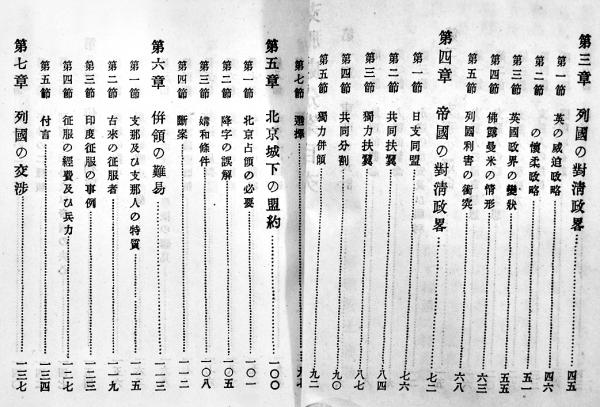 第三章 列國の對清政畧 四五
第一節 英の威迫政略 四六
第二節 〃の懷柔政略 五一
第三節 英國政界の變狀 五五
第四節 佛露曼米の情形 六三
第五節 列國利害の衝突 六八
第四章 帝國の對清政畧 七二
第一節 日支同盟 七六
第二節 共同扶翼 八四
第三節 獨力扶翼 八七
第四節 共同分割 九〇
第五節 獨力併領 九二
第七節 選擇 九七
第五章 北京城下の盟約 一〇〇
第一節 北京占領の必要 一〇一
第二節 降字の誤解 一〇五
第三節 媾和條件 一〇八
第四節 斷案 一一二
第六章 併領の難易 一一三
第一節 支那及び支那人の特質 一一五
第二節 古來の征服者 一一九
第三節 印度征服の事例 一二三
第四節 征服の經費及び兵力 一二七
第五節 付言 一三四
第七章 列國の交渉 一三七